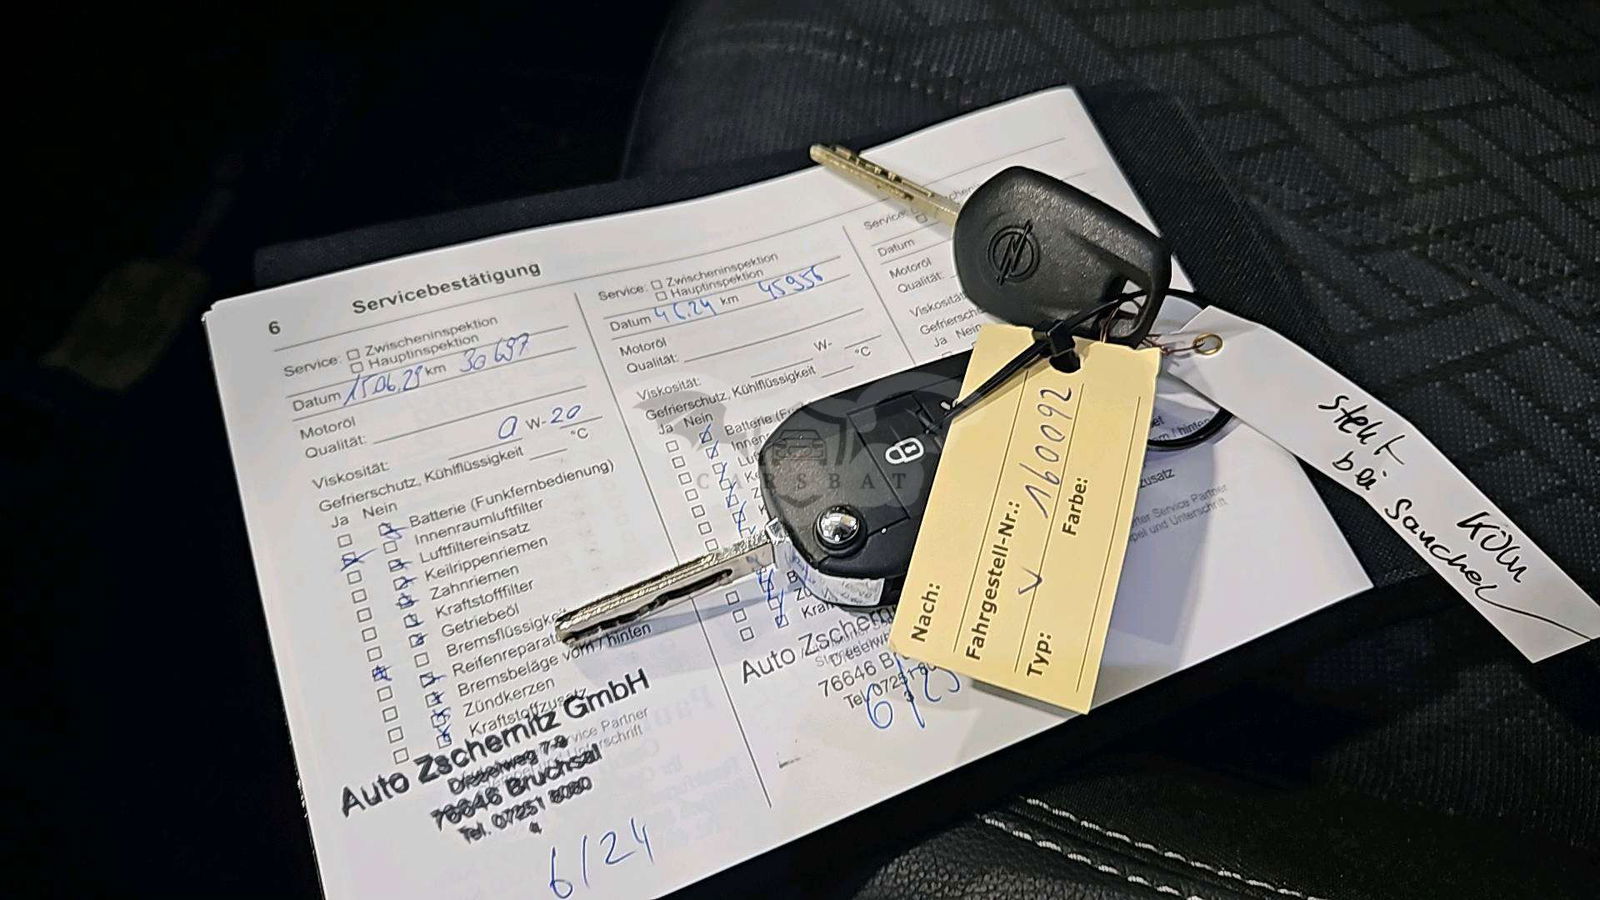 6
Servicebestätigung
Service: Zwischeninspektion
Hauptinspektion
Datum km 30697
Motoröl
Qualität: 0 W-20
Viskosität: °C
Gefrierschutz, Kühlflüssigkeit
Ja Nein
Batterie (Funkfernbedienung)
Innenraumluftfilter
Luftfiltereinsatz
Keilrippenriemen
Zahnriemen
Kraftstofffilter
Getriebeöl
Bremsflüssigkeit
Reifenreparat
Bremsbeläge vorn / hinten
Zündkerzen
Kraftstoffzusatz
Auto Zschernitz GmbH
Dieselweg 7-9
76646 Bruchsal
Tel. 07251 8080
6/24
Service: Zwischeninspektion
Hauptinspektion
Datum 4.6.24 km 45956
Motoröl
Qualität: W-
Viskosität: °C
Gefrierschutz, Kühlflüssigkeit
Ja Nein
Batterie (Fu
Innen
Auto Zschern
Dieselw
76646 B
Tel. 07251
6/25
Service:
Datum
Motoröl
Qualität:
Viskosität:
Gefriersch
Ja Nein
CARSBAT
Nach:
Fahrgestell-Nr.: 160092
Typ: Farbe:
steht
bei Köln